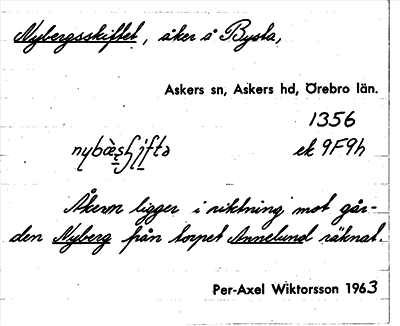 Nybergsskiftet, åker å Bysta,
Askers sn, Askers hd, Örebro län.
1356
ek 9F9h
Åkern ligger i riktning mot går-
den Nyberg från torpet Annelund räknat.
Per-Axel Wiktorsson 1963